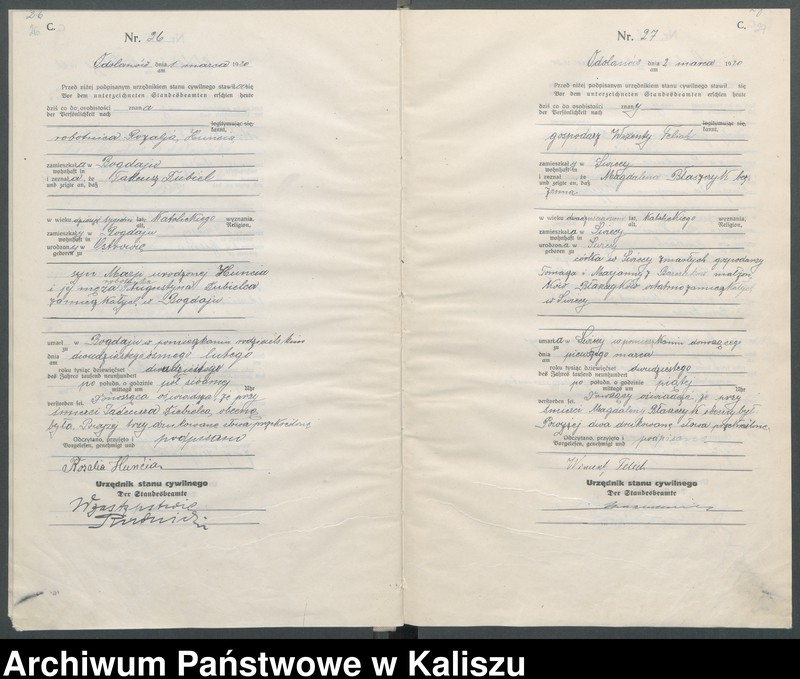 C.
Nr. 26
Odolanów dnia 1 marca 1920
am
Przed niżej podpisanym urzędnikiem stanu cywilnego stawił się
Vor dem unterzeichneten Standesbeamten erschien heute
dziś co do osobistości znana
der Persönlichkeit nach
legitymując się,
kannt,
robotnica Rozalja Huncia
zamieszkała w Bogdaju
wohnhaft in
i zeznała, że Tadeusz Kubiel
und zeigte an, daß
w wieku tygodni lat, katolickiego wyznania,
alt, Religion,
zamieszkały w Bogdaju
wohnhaft in
urodzony w Ostrowie
geboren zu
syn Marji urodzonej Huncia
i jej męża Augustyna Kubielca
zamieszkałych w Bogdaju
umarł w Bogdaju w pomieszkaniu rodzicielskim
zu
dnia lutego
am
roku tysiąc dziewięćset dwudziestego
des Jahres tausend neunhundert
po połudn. o godzinie pół siódmej
mittags um Uhr
verstorben sei. Donosząca oświadcza, że przy
śmierci Tadeusza Kubielca obecną
była. Powyżej trzy drukowane słowa przekreślono
Odczytano, przyjęto i podpisano
Vorgelesen, genehmigt und
Rozalia Huncia
Urzędnik stanu cywilnego
Der Standesbeamte
W zastępstwie
C.
Nr. 27
Odolanów dnia 2 marca 1920
am
Przed niżej podpisanym urzędnikiem stanu cywilnego stawił się
Vor dem unterzeichneten Standesbeamten erschien heute
dziś co do osobistości znany
der Persönlichkeit nach
legitymując się,
kannt,
gospodarz Wincenty
zamieszkały w
wohnhaft in
i zeznał, że Magdalena Błaszczyk bez
und zeigte an, daß
zawodu
w wieku lat, katolickiego wyznania,
alt, Religion,
zamieszkała w
wohnhaft in
urodzona w
geboren zu
córka w zmarłych gospodarzy
Tomasza i Marjanny z małżon
ków Błaszczyków ostatnio zamieszkałych
w
umarła w w pomieszkaniu donoszącego
zu
dnia pierwszego marca
am
roku tysiąc dziewięćset dwudziestego
des Jahres tausend neunhundert
po połudn. o godzinie piątej
mittags um Uhr
verstorben sei. Donoszący oświadcza, że przy
śmierci Magdaleny Błaszczyk obecny był.
Powyżej dwa drukowane słowa przekreślono.
Odczytano, przyjęto i podpisano
Vorgelesen, genehmigt und
Urzędnik stanu cywilnego
Der Standesbeamte
Archiwum Państwowe w Kaliszu